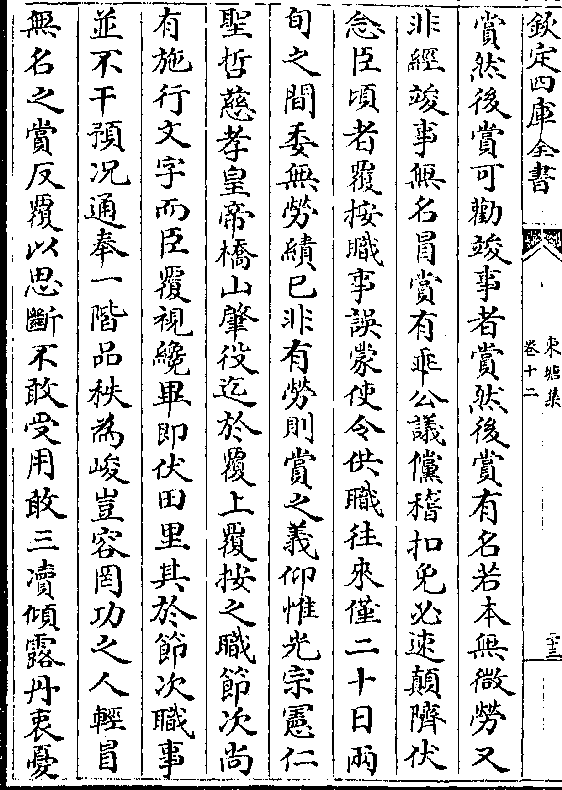 欽定四庫全書
東塘集
卷十二
二十三
賞然後賞可勸竣事者賞然後賞有名若本無微勞又
非經竣事無名冒賞有乖公議儻稽扣免必速顛隮伏
念臣頃者覆按職事誤蒙使令供職往來僅二十日兩
旬之間委無勞績已非有勞則賞之義仰惟光宗憲仁
聖哲慈孝皇帝橋山肇役迄於覆土覆按之職節次尚
有施行文字而臣覆視纔畢即伏田里其於節次職事
並不干預况通奉一階品秩為峻豈容罔功之人輕冒
無名之賞反覆以思斷不敢受用敢三瀆傾露丹衷憂